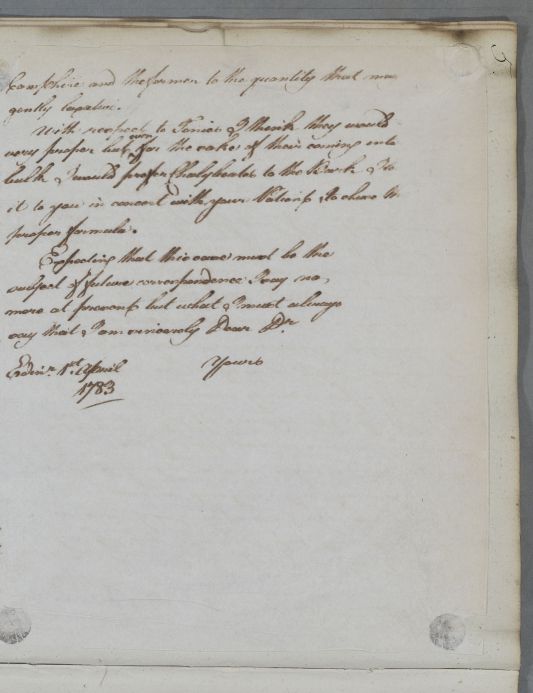 Camphire and the former to the quantity that may
gently laxative.
With respect to Tonics I think they would
very proper but even for the sake of their coming into
bulk I would prefer Chalybeates to the Bark & to
it to you in concert with your Patient to chuse the
proper formula.
Expecting that this case must be the
subject of future correspondence I say no
more at present but what I must always
say that I am sincerely Dear Dr
Yours
Edinr. 1st. April
1783
5